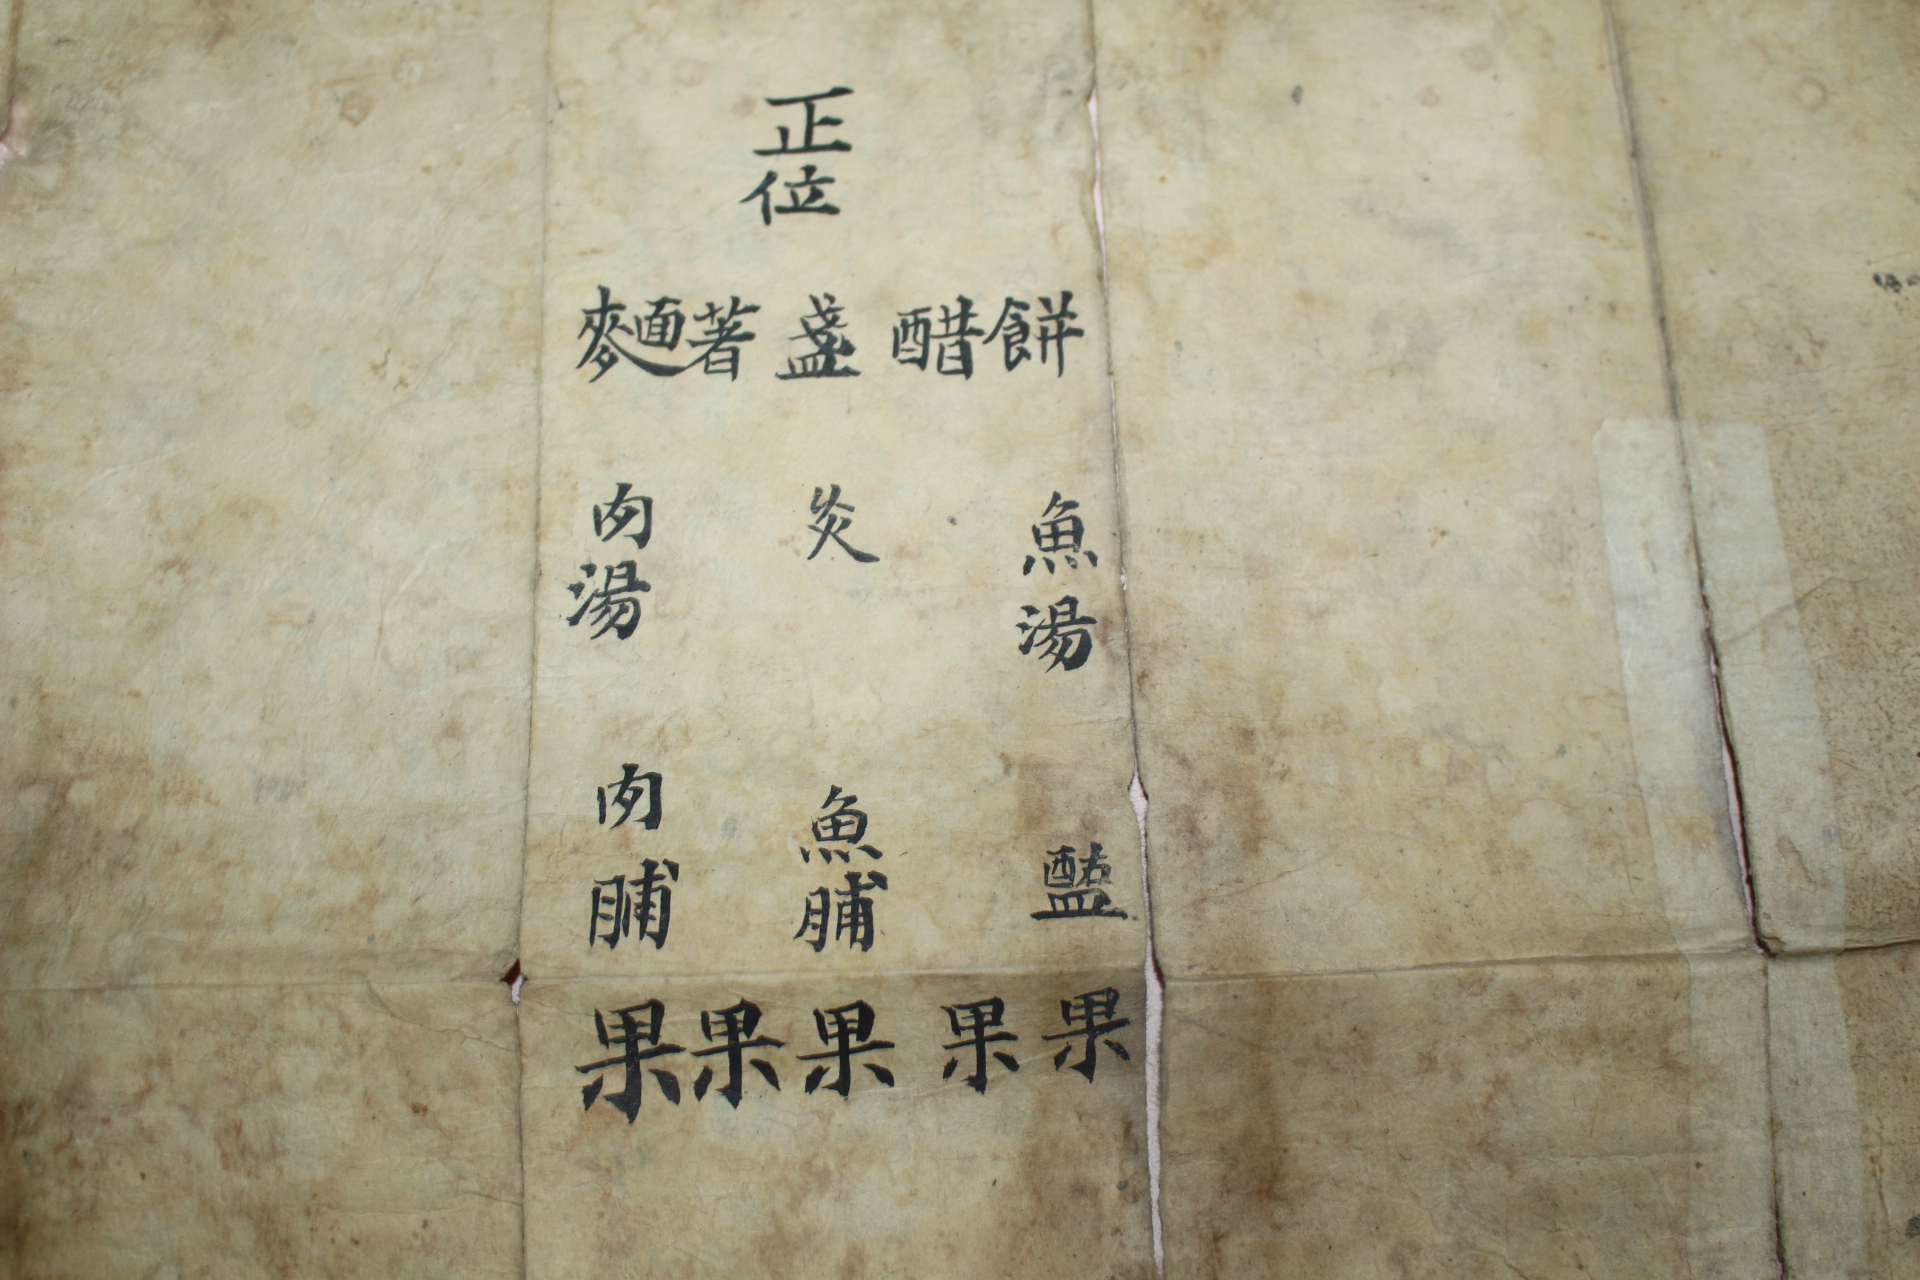 正位
麵著盞醋餅
肉湯 炙 魚湯
肉脯 魚脯 醢
果果果果果